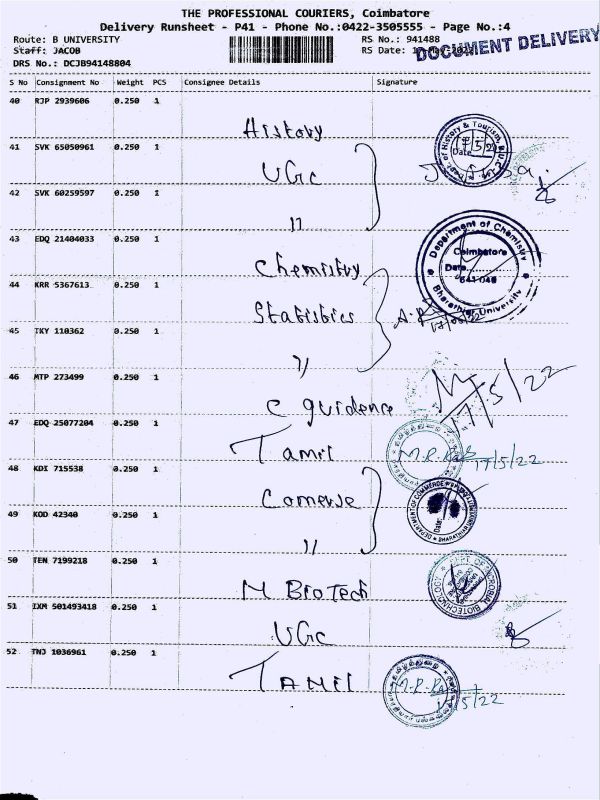 THE PROFESSIONAL COURIERS, Coimbatore
Delivery Runsheet - P41 - Phone No.:0422-3505555 - Page No.:4
Route: B UNIVERSITY RS No.: 941488
Staff: JACOB RS Date:
DOCUMENT DELIVERY
DRS No.: DCJB94148804
S No Consignment No Weight PCS Consignee Details Signature
40 RJP 2939606 0.250 1
History
41 SVK 65050961 0.250 1
UGc
42 SVK 60259597 0.250 1
"
43 EDQ 21404033 0.250 1
Chemistry
Department of Chemistry
Coimbatore
Date
641 046
Bharathiar University
44 KRR 5367613 0.250 1
Statistics
17/05/22
45 TKY 110362 0.250 1
"
46 MTP 273499 0.250 1
C guidence
17/5/22
47 EDQ 25077204 0.250 1
Tamil
17/5/22
48 KDI 715538 0.250 1
Comerse
DEPARTMENT OF COMMERCE
49 KOD 42340 0.250 1
"
50 TEN 7199218 0.250 1
M BioTech
DEPT. OF MICROBIAL BIOTECHNOLOGY
51 IXM 501493418 0.250 1
UGc
52 TNJ 1036961 0.250 1
TAMIL